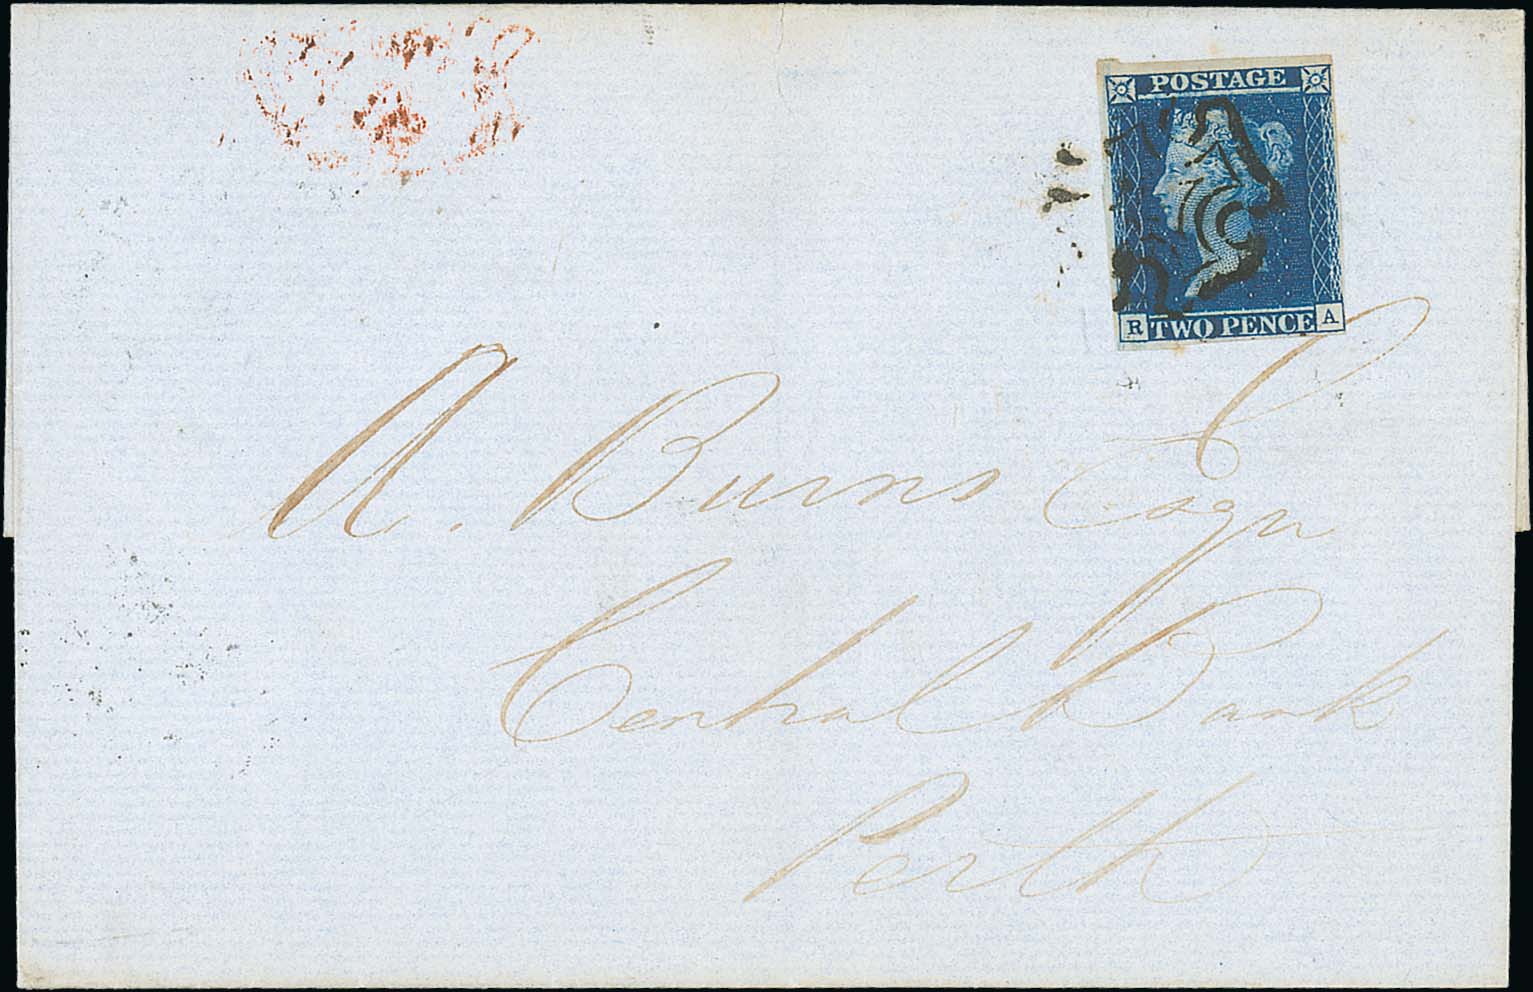 POSTAGE
R TWO PENCE A
A. Burns Esqr
Central Bank
Perth